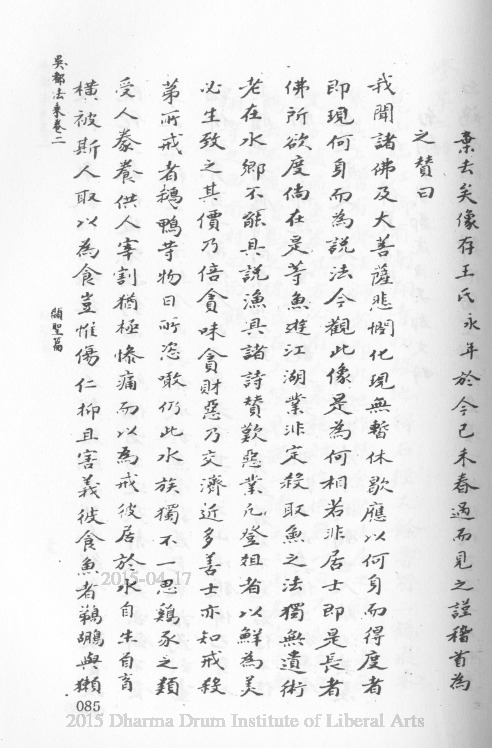 棄去矣像存王氏永年於今己未春過而見之謹稽首為
之贊曰
我聞諸佛及大菩薩悲憫化現無暫休歇應以何身而得度者
即現何身而為說法今觀此像是為何相若非居士即是長者
佛所欲度倘在是等魚遊江湖業非定殺取魚之法獨無遺術
老在水鄉不能具說漁具諸詩贊歎惡業凡登俎者以鮮為美
必生致之其價乃倍貪味貪財惡乃交濟近多善士亦知戒殺
第所戒者鵝鴨等物日所恣噉仍此水族獨不一思鷄豕之類
受人豢養供人宰割猶極慘痛而以為戒彼居於水自生自育
橫被斯人取以為食豈惟傷仁抑且害義彼食魚者鵜鶘與獺
吳都法乘卷二
顯聖篇
085
2015-04-17
2015 Dharma Drum Institute of Liberal Arts